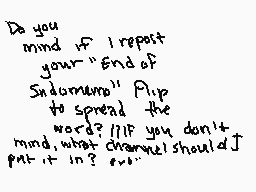 Do you
mind if I repost
your "End of
Sudomemo" Flip
to spread the
word? If you don't
mind, what channel should I
put it in?